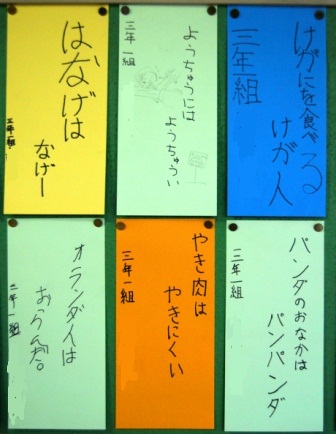 けがにを食べる
けが人
三年一組
ようちゅうには
ようちゅうい
三年一組
はなげは
なげー
三年一組
パンダのおなかは
パンパンダ
三年一組
やき肉は
やきにくい
三年一組
オランダ人は
おらんだ。
二年一組